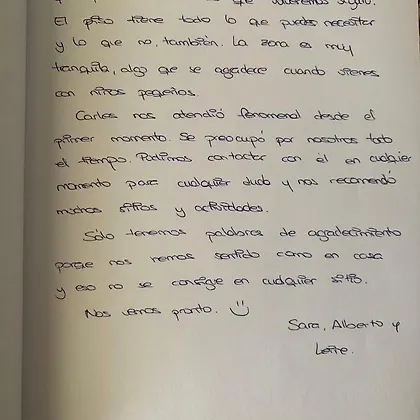 que volveremos seguro.
El piso tiene todo lo que puedes necesitar
y lo que no, también. La zona es muy
tranquila, algo que se agradece cuando vienes
con niños pequeños.
Carlos nos atendió fenomenal desde el
primer momento. Se preocupó por nosotros todo
el tiempo. Pudimos contactar con él en cualquier
momento para cualquier duda y nos recomendó
muchos sitios y actividades.
Sólo tenemos palabras de agradecimiento
porque nos hemos sentido como en casa
y eso no se consigue en cualquier sitio.
Nos vemos pronto. :)
Sara, Alberto y
Leire.